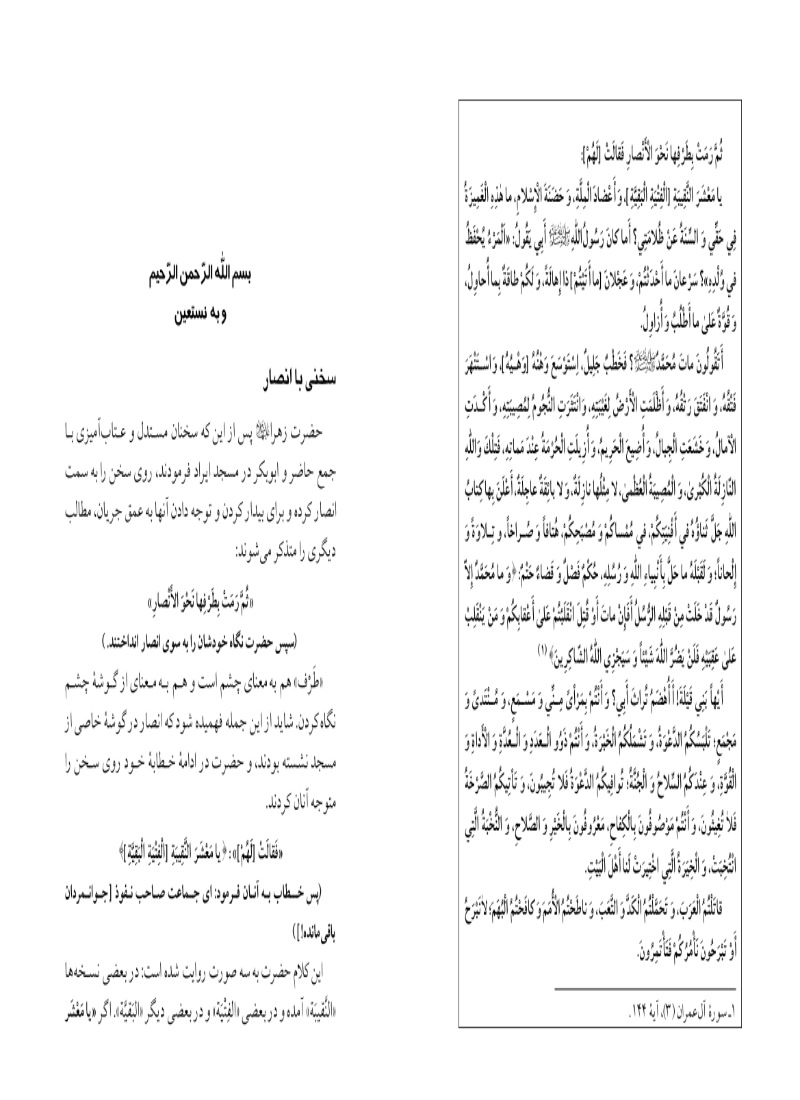 ثُمَّ رَمَتْ بِطَرْفِها نَحْوَ الْأَنْصارِ فَقالَتْ [لَهُمْ]:
يا مَعْشَرَ النَّقِيبَةِ [الْفِتْيَةِ الْبَقِيَّةِ]، وَ أَعْضادَ الْمِلَّةِ، وَ حَضَنَةَ الْإِسْلامِ، ما هٰذِهِ الْغَمِيزَةُ
فِي حَقِّي وَ السِّنَةُ عَنْ ظُلامَتِي؟ أَما كانَ رَسُولُ اللهِ ﷺ أَبِي يَقُولُ: «اَلْمَرْءُ يُحْفَظُ
فِي وُلْدِهِ»؟ سَرْعانَ ما أَحْدَثْتُمْ، وَ عَجْلانَ [ما أَتَيْتُمْ] ذا إِهالَةً، وَ لَكُمْ طاقَةٌ بِما أُحاوِلُ،
وَ قُوَّةٌ عَلىٰ ما أَطْلُبُ وَ أُزاوِلُ.
أَتَقُولُونَ ماتَ مُحَمَّدٌ ﷺ؟ فَخَطْبٌ جَلِيلٌ، اِسْتَوْسَعَ وَهْنُهُ [وَهْيُهُ]، وَ اسْتَنْهَرَ
فَتْقُهُ، وَ انْفَتَقَ رَتْقُهُ، وَ أَظْلَمَتِ الْأَرْضُ لِغَيْبَتِهِ، وَ انْتَثَرَتِ النُّجُومُ لِمُصِيبَتِهِ، وَ أَكْدَتِ
الْآمالُ، وَ خَشَعَتِ الْجِبالُ، وَ أُضِيعَ الْحَرِيمُ، وَ أُزِيلَتِ الْحُرْمَةُ عِنْدَ مَماتِهِ، فَتِلْكَ وَاللهِ
النّازِلَةُ الْكُبْرىٰ، وَ الْمُصِيبَةُ الْعُظْمىٰ، لا مِثْلُها نازِلَةٌ، وَ لا بائِقَةٌ عاجِلَةٌ، أَعْلَنَ بِها كِتابُ
اللهِ جَلَّ ثَناؤُهُ فِي أَفْنِيَتِكُمْ، فِي مُمْساكُمْ وَ مُصْبَحِكُمْ، هُتافاً وَ صُراخاً، وَ تِلاوَةً وَ
إِلْحاناً؛ وَ لَقَبْلَهُ ما حَلَّ بِأَنْبِياءِ اللهِ وَ رُسُلِهِ، حُكْمٌ فَصْلٌ وَ قَضاءٌ حَتْمٌ: ﴿وَ ما مُحَمَّدٌ إِلاّ
رَسُولٌ قَدْ خَلَتْ مِنْ قَبْلِهِ الرُّسُلُ أَفَإِنْ ماتَ أَوْ قُتِلَ انْقَلَبْتُمْ عَلىٰ أَعْقابِكُمْ وَ مَنْ يَنْقَلِبْ
عَلىٰ عَقِبَيْهِ فَلَنْ يَضُرَّ اللهَ شَيْئاً وَ سَيَجْزِي اللهُ الشّاكِرِينَ﴾ (۱)
أَيْهاً بَنِي قَيْلَةَ! أَ أُهْضَمُ تُراثَ أَبِي؟ وَ أَنْتُمْ بِمَرْأىً مِنِّي وَ مَسْمَعٍ، وَ مُنْتَدىً وَ
مَجْمَعٍ؛ تَلْبَسُكُمُ الدَّعْوَةُ، وَ تَشْمَلُكُمُ الْخَبْرَةُ، وَ أَنْتُمْ ذَوُو الْعَدَدِ وَ الْعُدَّةِ وَ الْأَداةِ وَ
الْقُوَّةِ، وَ عِنْدَكُمُ السِّلاحُ وَ الْجُنَّةُ؛ تُوافِيكُمُ الدَّعْوَةُ فَلا تُجِيبُونَ، وَ تَأْتِيكُمُ الصَّرْخَةُ
فَلا تُغِيثُونَ، وَ أَنْتُمْ مَوْصُوفُونَ بِالْكِفاحِ، مَعْرُوفُونَ بِالْخَيْرِ وَ الصَّلاحِ، وَ النُّخْبَةُ الَّتِي
انْتُخِبَتْ، وَ الْخِيَرَةُ الَّتِي اخْتِيرَتْ لَنا أَهْلَ الْبَيْتِ.
قاتَلْتُمُ الْعَرَبَ، وَ تَحَمَّلْتُمُ الْكَدَّ وَ التَّعَبَ، وَ ناطَحْتُمُ الْأُمَمَ وَ كافَحْتُمُ الْبُهَمَ؛ لا نَبْرَحُ
أَوْ تَبْرَحُونَ نَأْمُرُكُمْ فَتَأْتَمِرُونَ.
۱ـ سورۀ آل‌عمران (۳)، آیۀ ۱۴۴.
بسم الله الرّحمن الرّحیم
و به نستعین
سخنی با انصار
حضرت زهرا پس از این که سخنان مستدل و عتاب‌آمیزی با
جمع حاضر و ابوبکر در مسجد ایراد فرمودند، روی سخن را به سمت
انصار کرده و برای بیدار کردن و توجه دادن آنها به عمق جریان، مطالب
دیگری را متذکر می‌شوند:
«ثُمَّ رَمَتْ بِطَرْفِها نَحْوَ الْأَنْصارِ»
(سپس حضرت نگاه خودشان را به سوی انصار انداختند.)
«طَرْف» هم به معنای چشم است و هم به معنای از گوشۀ چشم
نگاه کردن. شاید از این جمله فهمیده شود که انصار در گوشۀ خاصی از
مسجد نشسته بودند، و حضرت در ادامۀ خطابۀ خود روی سخن را
متوجه آنان کردند.
«فَقالَتْ [لَهُمْ]»: ﴿یا مَعْشَرَ النَّقِیبَةِ [الْفِتْیَةِ الْبَقِیَّةِ]﴾
(پس خطاب به آنان فرمود: ای جماعت صاحب نفوذ [جوانمردان
باقی مانده!])
این کلام حضرت به سه صورت روایت شده است: در بعضی نسخه‌ها
«النَّقیبَة» آمده و در بعضی «الفِتْیَة» و در بعضی دیگر «البَقیَّة». اگر «یا مَعْشَر